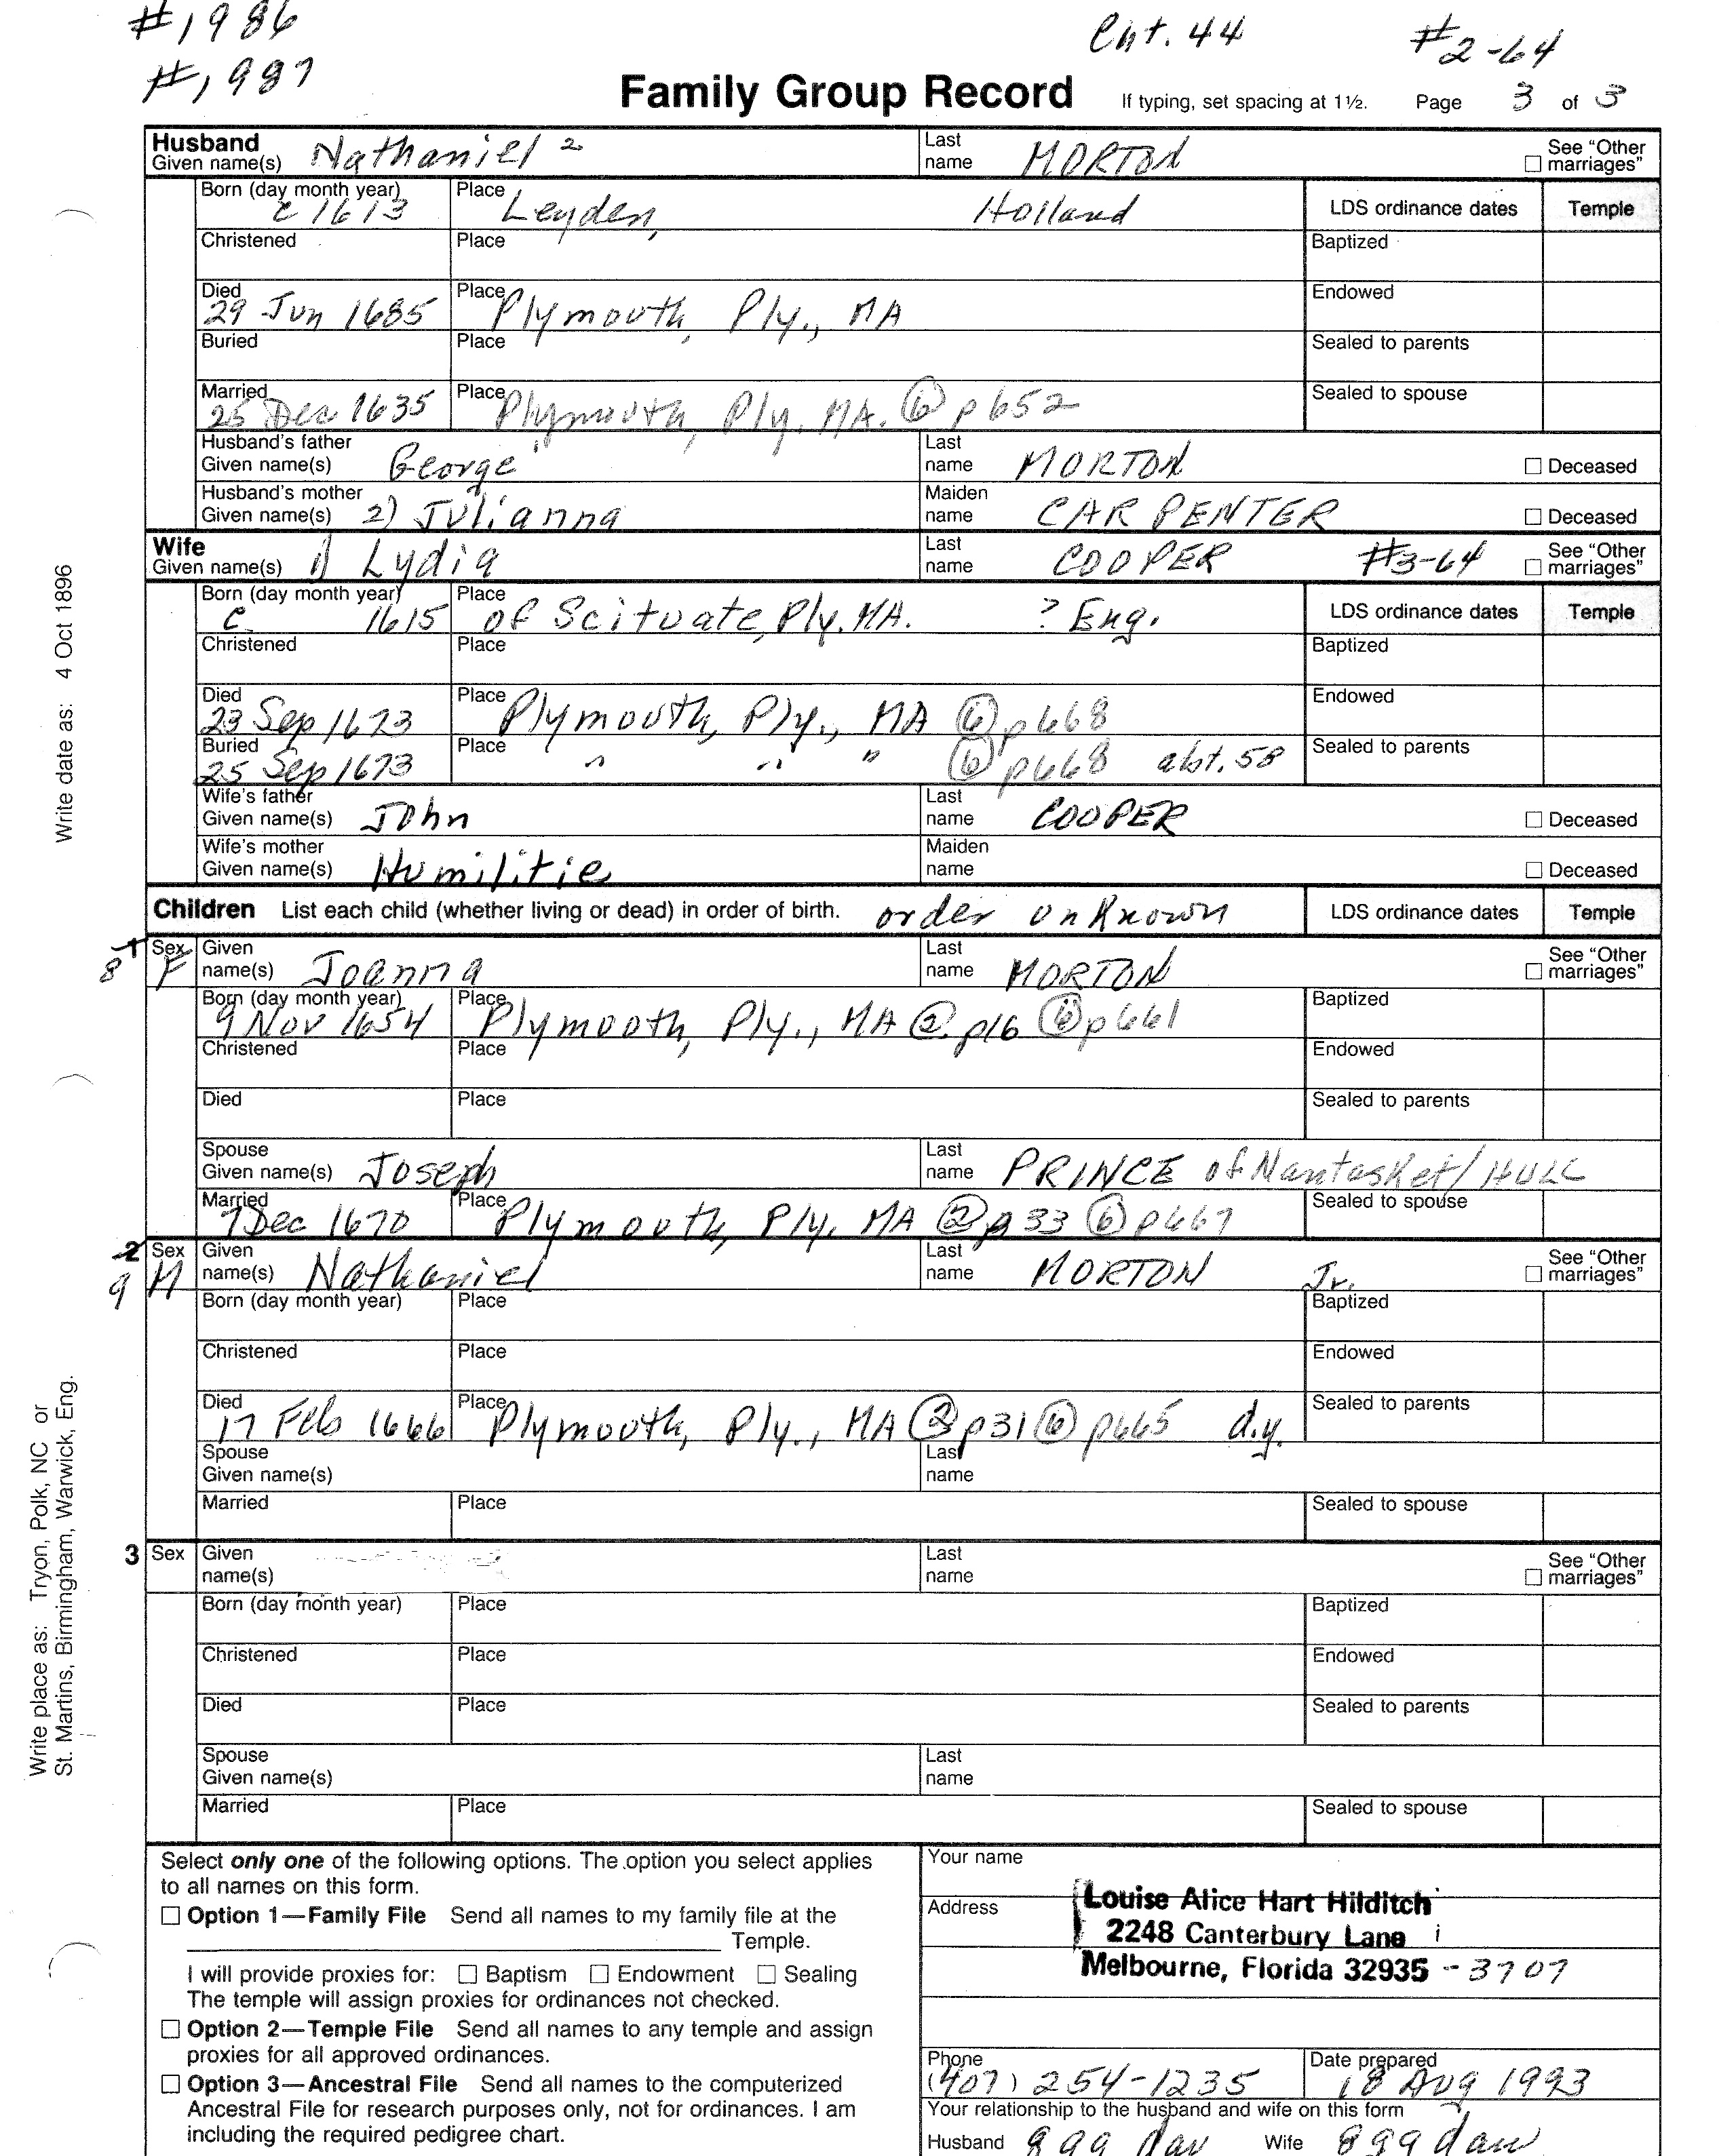 #1986 Cht. 44 #2-64
#1987
Family Group Record If typing, set spacing at 1½. Page 3 of 3
Husband
Given name(s) Nathaniel 2 Last name MORTON See "Other marriages"
Born (day month year) c 1613 Place Leyden, Holland LDS ordinance dates Temple
Christened Place Baptized
Died 29 Jun 1685 Place Plymouth, Ply., MA Endowed
Buried Place Sealed to parents
Married 25 Dec 1635 Place Plymouth, Ply. MA. 6 p652 Sealed to spouse
Husband's father
Given name(s) George Last name MORTON Deceased
Husband's mother
Given name(s) 2) Julianna Maiden name CARPENTER Deceased
Wife
Given name(s) 1) Lydia Last name COOPER #3-64 See "Other marriages"
Born (day month year) c 1615 Place of Scituate, Ply. MA. ? Eng. LDS ordinance dates Temple
Christened Place Baptized
Died 23 Sep 1673 Place Plymouth, Ply., MA 6 p668 Endowed
Buried 25 Sep 1673 Place " " " 6 p668 abt. 58 Sealed to parents
Wife's father
Given name(s) John Last name COOPER Deceased
Wife's mother
Given name(s) Humilitie Maiden name Deceased
Children List each child (whether living or dead) in order of birth. order unknown LDS ordinance dates Temple
1 8 Sex F Given name(s) Joanna Last name MORTON See "Other marriages"
Born (day month year) 9 Nov 1654 Place Plymouth, Ply., MA 2 p16 6 p661 Baptized
Christened Place Endowed
Died Place Sealed to parents
Spouse
Given name(s) Joseph Last name PRINCE of Nantasket/HULL
Married 7 Dec 1670 Place Plymouth, Ply. MA 2 p33 6 p667 Sealed to spouse
2 9 Sex M Given name(s) Nathaniel Last name MORTON Jr. See "Other marriages"
Born (day month year) Place Baptized
Christened Place Endowed
Died 17 Feb 1666 Place Plymouth, Ply., MA 2 p31 6 p665 d.y. Sealed to parents
Spouse
Given name(s) Last name
Married Place Sealed to spouse
3 Sex Given name(s) Last name See "Other marriages"
Born (day month year) Place Baptized
Christened Place Endowed
Died Place Sealed to parents
Spouse
Given name(s) Last name
Married Place Sealed to spouse
Write date as: 4 Oct 1896
Write place as: Tryon, Polk, NC or
St. Martins, Birmingham, Warwick, Eng.
Select only one of the following options. The option you select applies
to all names on this form.
Option 1—Family File Send all names to my family file at the
Temple.
I will provide proxies for: Baptism Endowment Sealing
The temple will assign proxies for ordinances not checked.
Option 2—Temple File Send all names to any temple and assign
proxies for all approved ordinances.
Option 3—Ancestral File Send all names to the computerized
Ancestral File for research purposes only, not for ordinances. I am
including the required pedigree chart.
Your name
Address Louise Alice Hart Hilditch
2248 Canterbury Lane
Melbourne, Florida 32935 -3707
Phone (407) 254-1235 Date prepared 18 Aug 1993
Your relationship to the husband and wife on this form
Husband 8 gg dau Wife 8 gg dau